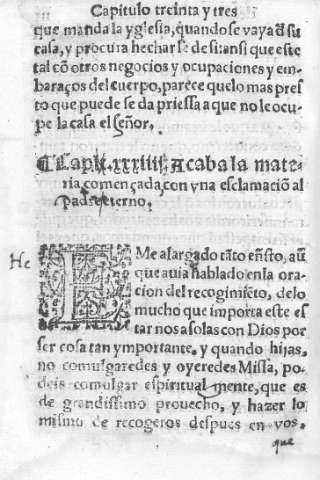 Capitulo treinta y tres
que manda la yglesia, quando se vaya a su
casa, y procura hechar se de si, ansi que este
tal cō otros negocios y ocupaciones y em-
baraços del cuerpo, parece que lo mas pres
to que puede se da priessa a que no le ocu-
pe la casa el señor.
¶ Capit. xxxiiij. Acaba la mate-
ria començada, con vna esclamaciō al
Padre eterno.
He
ME alargado tāto en̄sto, aū
que auia hablado en la ora
cion del recogimiēto, de lo
mucho que importa este es
tar nos a solas con Dios por
ser cosa tan ymportante, y quando hijas,
no comulgaredes y oyeredes Missa, po-
deis comulgar espiritual mente, que es
de grandissimo prouecho, y hazer lo
mismo de recogeros despues en vos.
que